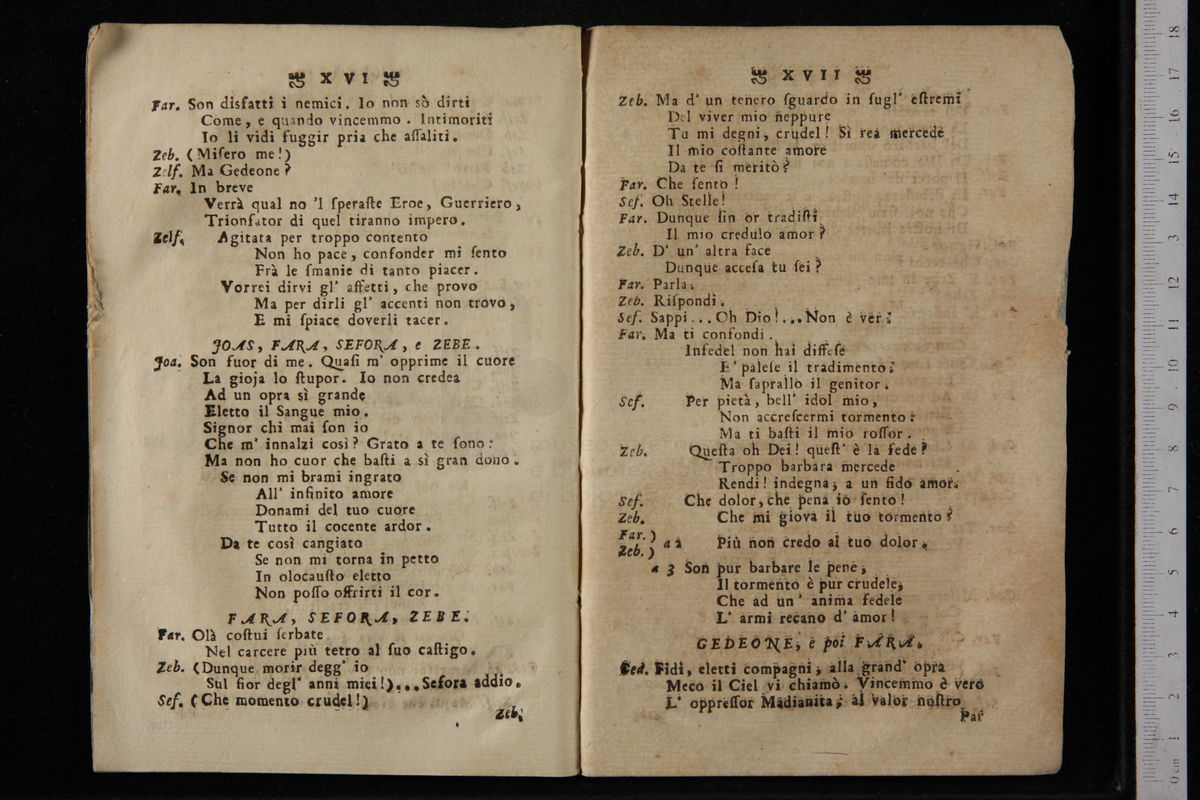 XVI
Far. Son disfatti i nemici. Io non sò dirti
Come, e quando vincemmo. Intimoriti
Io li vidi fuggir pria che aſſaliti.
Zeb. (Miſero me!)
Zelf. Ma Gedeone?
Far. In breve
Verrà qual no 'l ſperaſte Eroe, Guerriero,
Trionfator di quel tiranno impero.
Zelf. Agitata per troppo contento
Non ho pace, confonder mi ſento
Frà le ſmanie di tanto piacer.
Vorrei dirvi gl' affetti, che provo
Ma per dirli gl' accenti non trovo,
E mi ſpiace doverli tacer.
JOAS, FARA, SEFORA, e ZEBE.
Joa. Son fuor di me. Quaſi m' opprime il cuore
La gioja lo ſtupor. Io non credea
Ad un opra sì grande
Eletto il Sangue mio.
Signor chi mai ſon io
Che m' innalzi così? Grato a te ſono:
Ma non ho cuor che baſti a sì gran dono.
Se non mi brami ingrato
All' infinito amore
Donami del tuo cuore
Tutto il cocente ardor.
Da te così cangiato
Se non mi torna in petto
In olocauſto eletto
Non poſſo offrirti il cor.
FARA, SEFORA, ZEBE.
Far. Olà coſtui ſerbate
Nel carcere più tetro al ſuo caſtigo.
Zeb. (Dunque morir degg' io
Sul fior degl' anni miei!)... Sefora addio.
Sef. (Che momento crudel!)
Zeb.
XVII
Zeb. Ma d' un tenero ſguardo in ſugl' eſtremi
Del viver mio neppure
Tu mi degni, crudel! Sì rea mercede
Il mio coſtante amore
Da te ſi meritò?
Far. Che ſento!
Sef. Oh Stelle!
Far. Dunque ſin or tradiſti
Il mio credulo amor?
Zeb. D' un' altra face
Dunque acceſa tu ſei?
Far. Parla.
Zeb. Riſpondi.
Sef. Sappi... Oh Dio!... Non è ver.
Far. Ma ti confondi.
Infedel non hai difſeſe
E' paleſe il tradimento:
Ma ſaprallo il genitor.
Sef. Per pietà, bell' idol mio,
Non accreſcermi tormento:
Ma ti baſti il mio roſſor.
Zeb. Queſta oh Dei! queſt' è la fede?
Troppo barbara mercede
Rendi! indegna, a un fido amor.
Sef. Che dolor, che pena io ſento!
Zeb. Che mi giova il tuo tormento?
Far. )
Zeb. ) a 2 Più non credo al tuo dolor.
a 3 Son pur barbare le pene,
Il tormento è pur crudele,
Che ad un' anima fedele
L' armi recano d' amor!
GEDEONE, e poi FARA.
Ged. Fidi, eletti compagni, alla grand' opra
Meco il Ciel vi chiamò. Vincemmo è vero
L' oppreſſor Madianita; al valor noſtro
Par